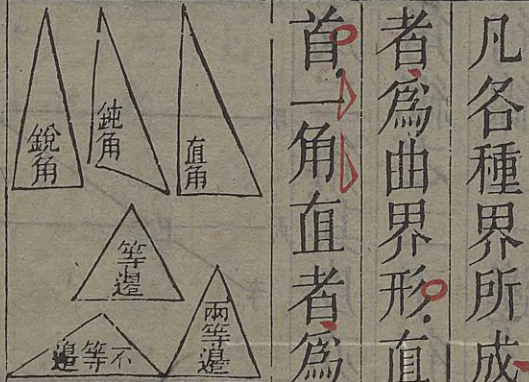 凡各種界所成
者爲曲界形直
首一角直者爲
直角
鈍角
銳角
等邊
兩等邊
不等邊